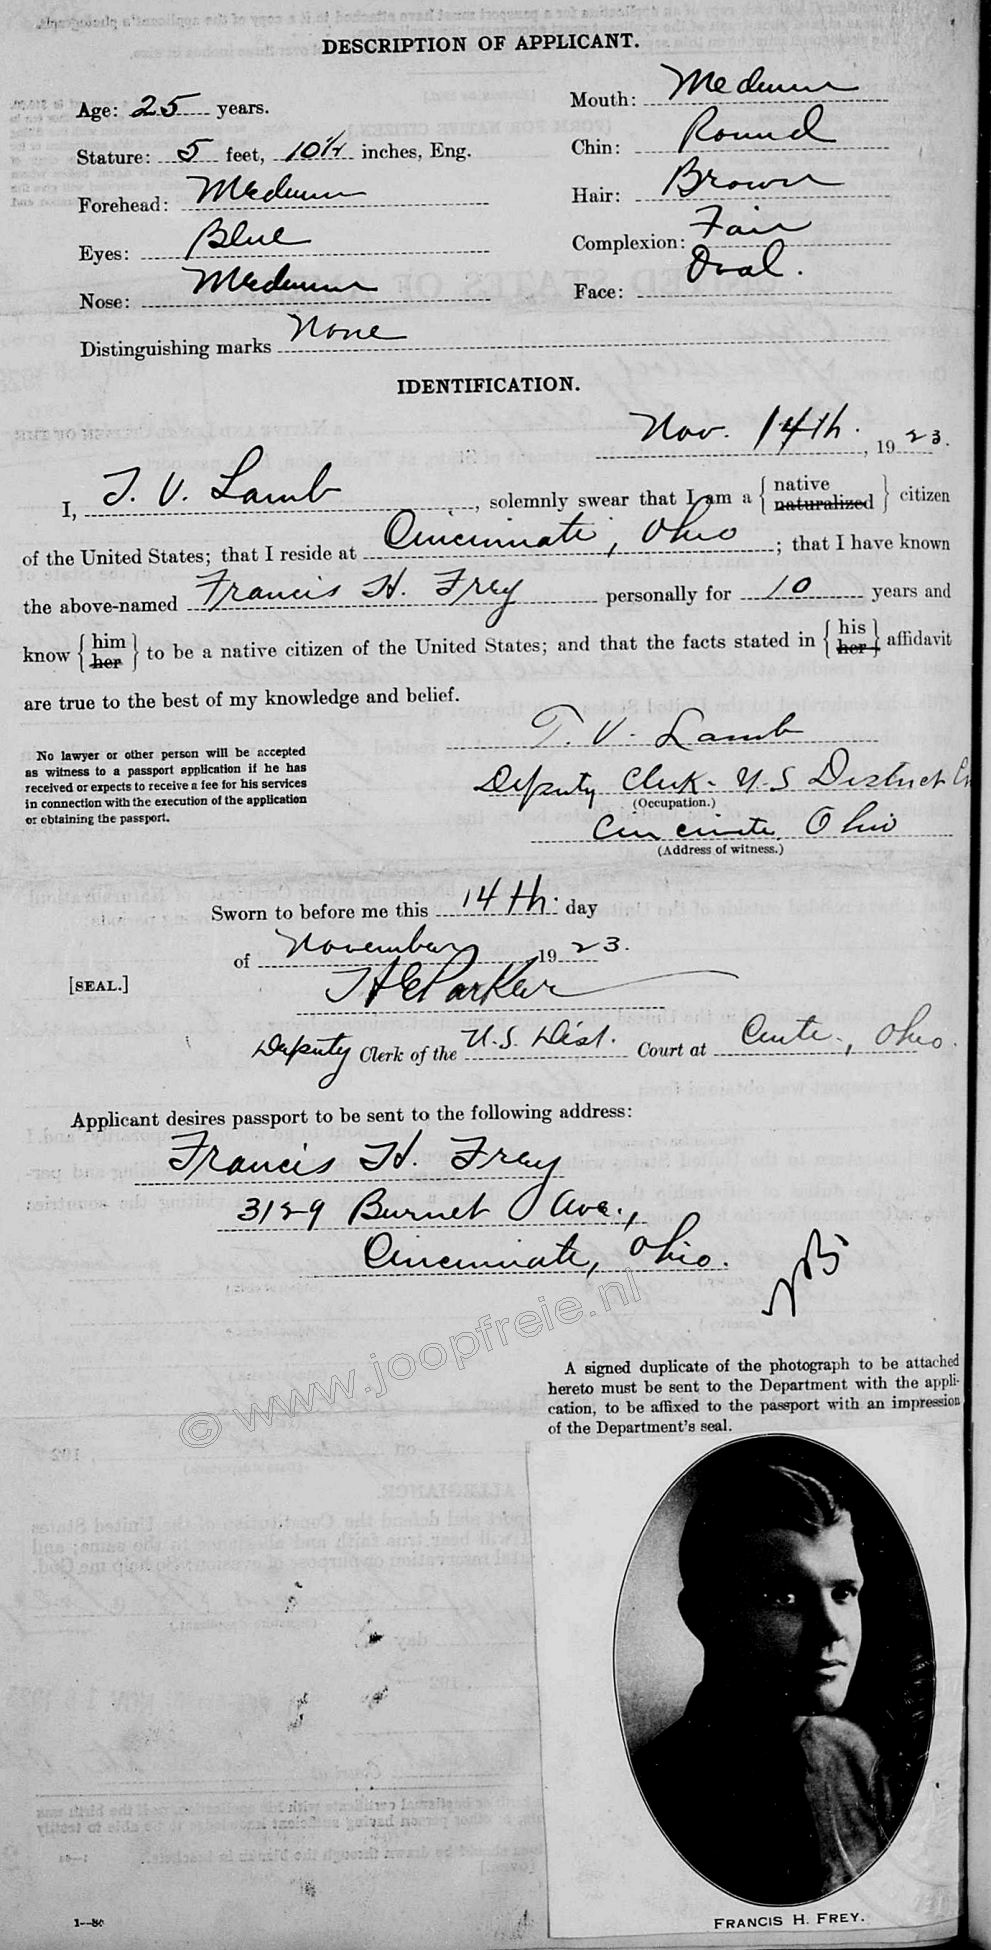 DESCRIPTION OF APPLICANT.
Age: 25 years.
Mouth: Medium
Stature: 5 feet, 10 1/4 inches, Eng.
Chin: Round
Forehead: Medium
Hair: Brown
Eyes: Blue
Complexion: Fair
Nose: Medium
Face: Oval.
Distinguishing marks None
IDENTIFICATION.
Nov. 14th., 1923.
I, T. V. Lamb, solemnly swear that I am a { native naturalized } citizen
of the United States; that I reside at Cincinnati, Ohio; that I have known
the above-named Francis H. Frey personally for 10 years and
know { him her } to be a native citizen of the United States; and that the facts stated in { his her } affidavit
are true to the best of my knowledge and belief.
T. V. Lamb
No lawyer or other person will be accepted
as witness to a passport application if he has
received or expects to receive a fee for his services
in connection with the execution of the application
or obtaining the passport.
Deputy Clerk - U S District
(Occupation.)
Cincinnati, Ohio
(Address of witness.)
Sworn to before me this 14th. day
of November 1923.
[SEAL.]
H E Parker
Deputy Clerk of the U.S. Dist. Court at Cinti., Ohio.
Applicant desires passport to be sent to the following address:
Francis H. Frey
3129 Burnet Ave.,
Cincinnati, Ohio.
© www.joopfreie.nl
A signed duplicate of the photograph to be attached
hereto must be sent to the Department with the appli-
cation, to be affixed to the passport with an impression
of the Department's seal.
FRANCIS H. FREY.